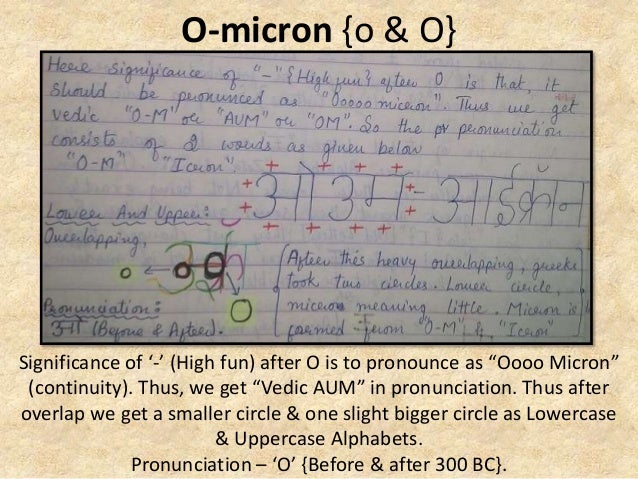 O-micron {o & O}
Here significance of "-" {High fun} after O is that, it
should be peronunced as "Ooooo micron". Thus we get
vedic "O-M" or "AUM" or "OM". So the peronunciation
consists of 2 words as given below
"O-M" "Iceron".
+ + + +
+ +
+ +
+ + + +
Lower And Upper:
Overlapping,
o
O
Pronunciation:
(Before & After).
After this heavy overlapping, greeks
took two circles. Lower circle,
micron meaning little. Micron is
formed from "O-M" & "Iceron"
Significance of ‘-’ (High fun) after O is to pronounce as “Oooo Micron”
(continuity). Thus, we get “Vedic AUM” in pronunciation. Thus after
overlap we get a smaller circle & one slight bigger circle as Lowercase
& Uppercase Alphabets.
Pronunciation – ‘O’ {Before & after 300 BC}.